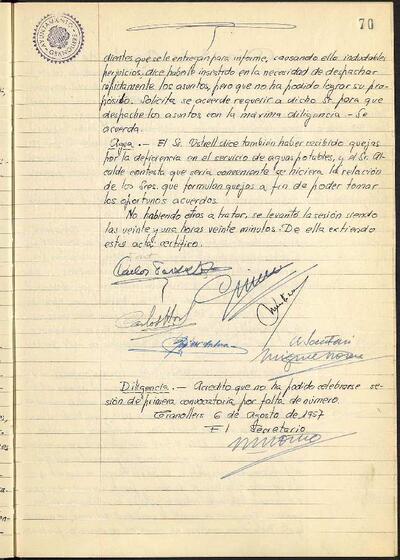 70
AYUNTAMIENTO GRANOLLERS
dientes que se le entregan para informe, causando ello indudables
perjuicios, dice haberle insistido en la necesidad de despachar
rápidamente los asuntos, pero que no ha podido lograr su pro-
pósito. Solicita se acuerde requerir a dicho Sr. para que
despache los asuntos con la máxima diligencia - Se
acuerda.
Agua .- El Sr. Ustrell dice también haber recibido quejas
por la deficiencia en el servicio de aguas potables, y el Sr. Al-
calde contesta que sería conveniente se hiciera la relación
de los Sres. que formulan quejas a fin de poder tomar
los oportunos acuerdos.
No habiendo otros a tratar, se levanta la sesión siendo
las veinte y una horas veinte minutos. De ella extiendo
esta acta, certifico.
Carlos
Carlos
Diligencia .- Acredito que no ha podido celebrarse se-
sión de primera convocatoria por falta de número.
Granollers 6 de Agosto de 1957
El Secretario